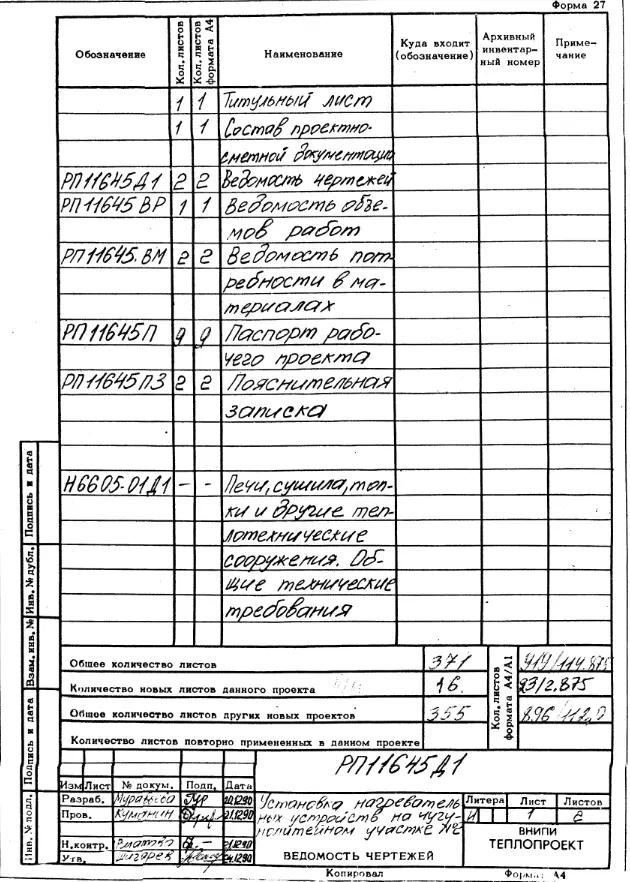 Форма 27
Обозначение Кол. листов Кол. листов формата А4 Наименование Куда входит (обозначение) Архивный инвентарный номер Примечание
1 1 Титульный лист
1 1 Состав проектно-
сметной документации
РП11645Д1 2 2 Ведомость чертежей
РП11645 ВР 1 1 Ведомость объе-
мов работ
РП11645.ВМ 2 2 Ведомость пот-
ребности в ма-
териалах
РП11645П 9 9 Паспорт рабо-
чего проекта
РП11645ПЗ 2 2 Пояснительная
записка
Н6605-01Д1 - - Печи, сушила, топ-
ки и другие теп-
лотехнические
сооружения. Об-
щие технические
требования
Общее количество листов 371
Количество новых листов данного проекта 16.
Общее количество листов других новых проектов 355
Количество листов повторно примененных в данном проекте
Кол. листов формата А4/А1
919/114.875
23/2.875
896/112,0
Подпись и дата
Инв. № дубл.
Взам. инв. №
Подпись и дата
Инв. № подл.
РП11645Д1
Изм Лист № докум. Подп. Дата
Разраб. 20.12.90
Пров. 21.12.90
Н.контр.
Утв. 24.12.90
Установка нагреватель
ных устройств на чугу-
нолитейном участке №2
ВЕДОМОСТЬ ЧЕРТЕЖЕЙ
Литера Лист Листов
И 1 2
ВНИПИ
ТЕПЛОПРОЕКТ
Копировал Формат А4